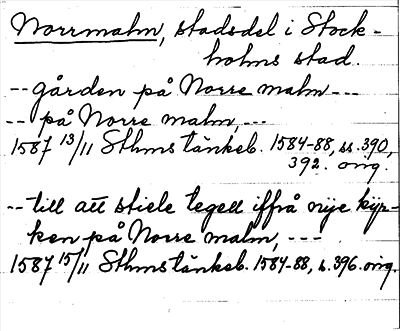 Norrmalm, stadsdel i Stock-
holms stad.
-- gården på Norre malm ---
-- på Norre malm, ---
1587 13/11 Sthms tänkeb. 1584-88, ss. 390,
392. orig.
-- till att stiele tegell iffrå nije kyp-
ken på Norre malm, ---
1587 15/11 Sthms tänkeb. 1584-88, s. 396. orig.